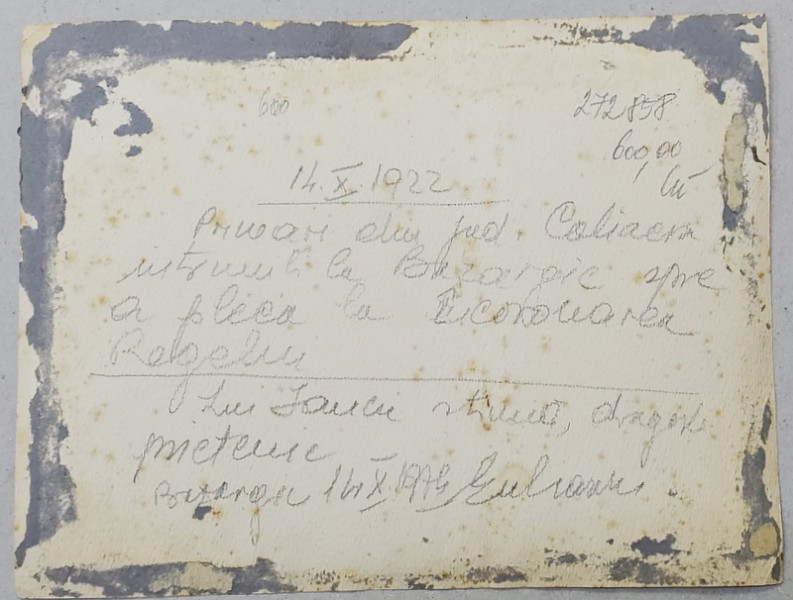 600
272858
600,00
14.X.1922
Primari din jud. Caliacra
intruniti la Bazargic spre
a pleca la Incoronarea
Regelui
Lui Iancu stima, dragoste
prietenie
Bazargic 14 X